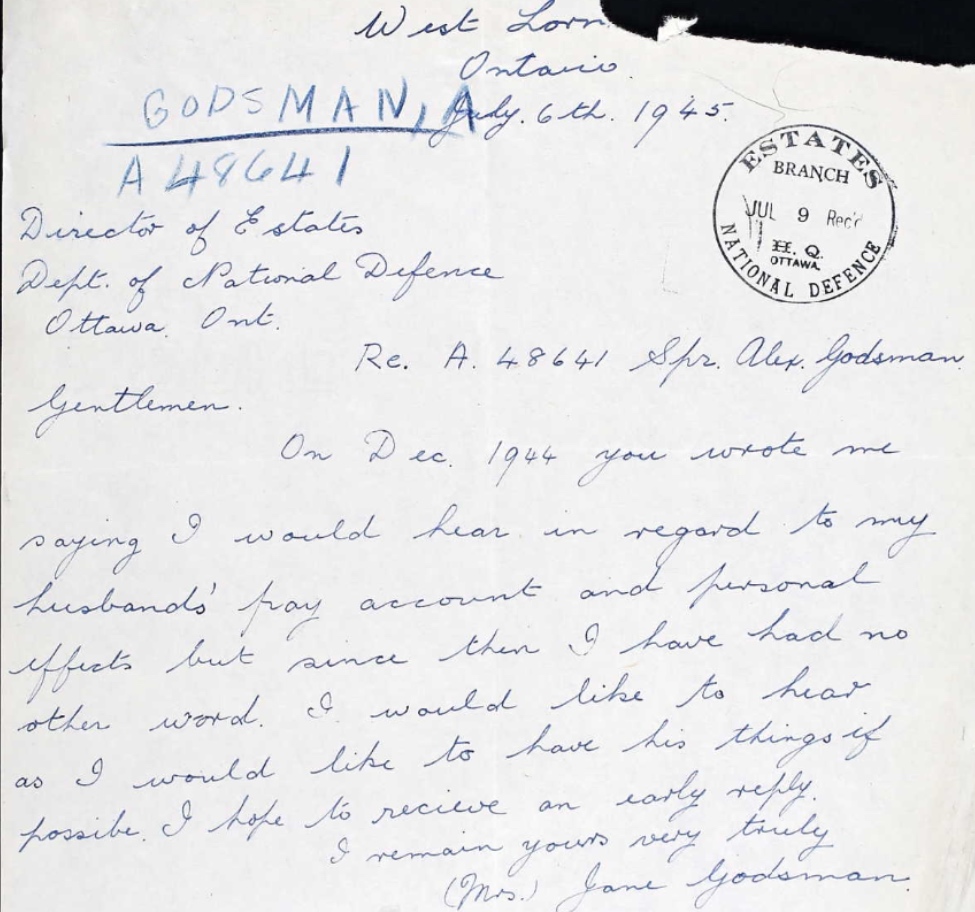 West Lorn
Ontario.
July. 6th. 1945.
GODSMAN, A
A 48641
ESTATES
BRANCH
JUL 9 Rec'd
H. Q.
OTTAWA.
NATIONAL DEFENCE
Director of Estates
Dept. of National Defence
Ottawa. Ont.
Re. A. 48641 Spr. Alex. Godsman.
Gentlemen.
On Dec. 1944 you wrote me
saying I would hear in regard to my
husbands' pay account and personal
effects but since then I have had no
other word. I would like to hear
as I would like to have his things if
possibe. I hope to recieve an early reply.
I remain yours very truly
(Mrs.) Jane Godsman.